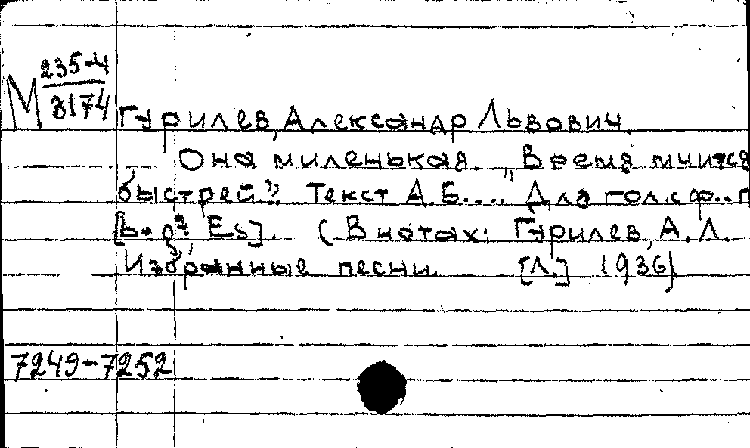 М 235-4
3174
Гурилев, Александр Львович.
Она миленькая. „Время мчится
быстрей." Текст А.Б.... Для гол. с ф.-п
Es]. (В нотах: Гурилев, А. Л.
Избранные песни. [Л.] 1936)
7249-7252